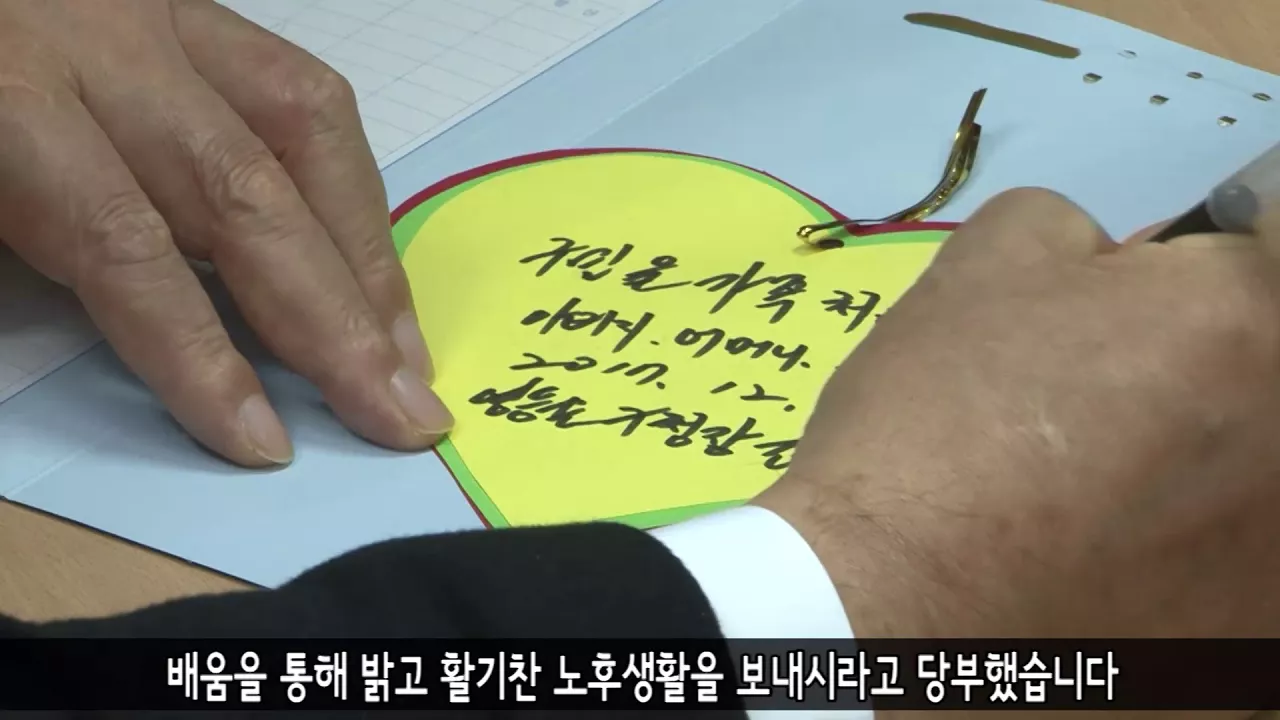 구민을 가족처
아버지. 어머니.
2017. 12.
영등포구청장
배움을 통해 밝고 활기찬 노후생활을 보내시라고 당부했습니다